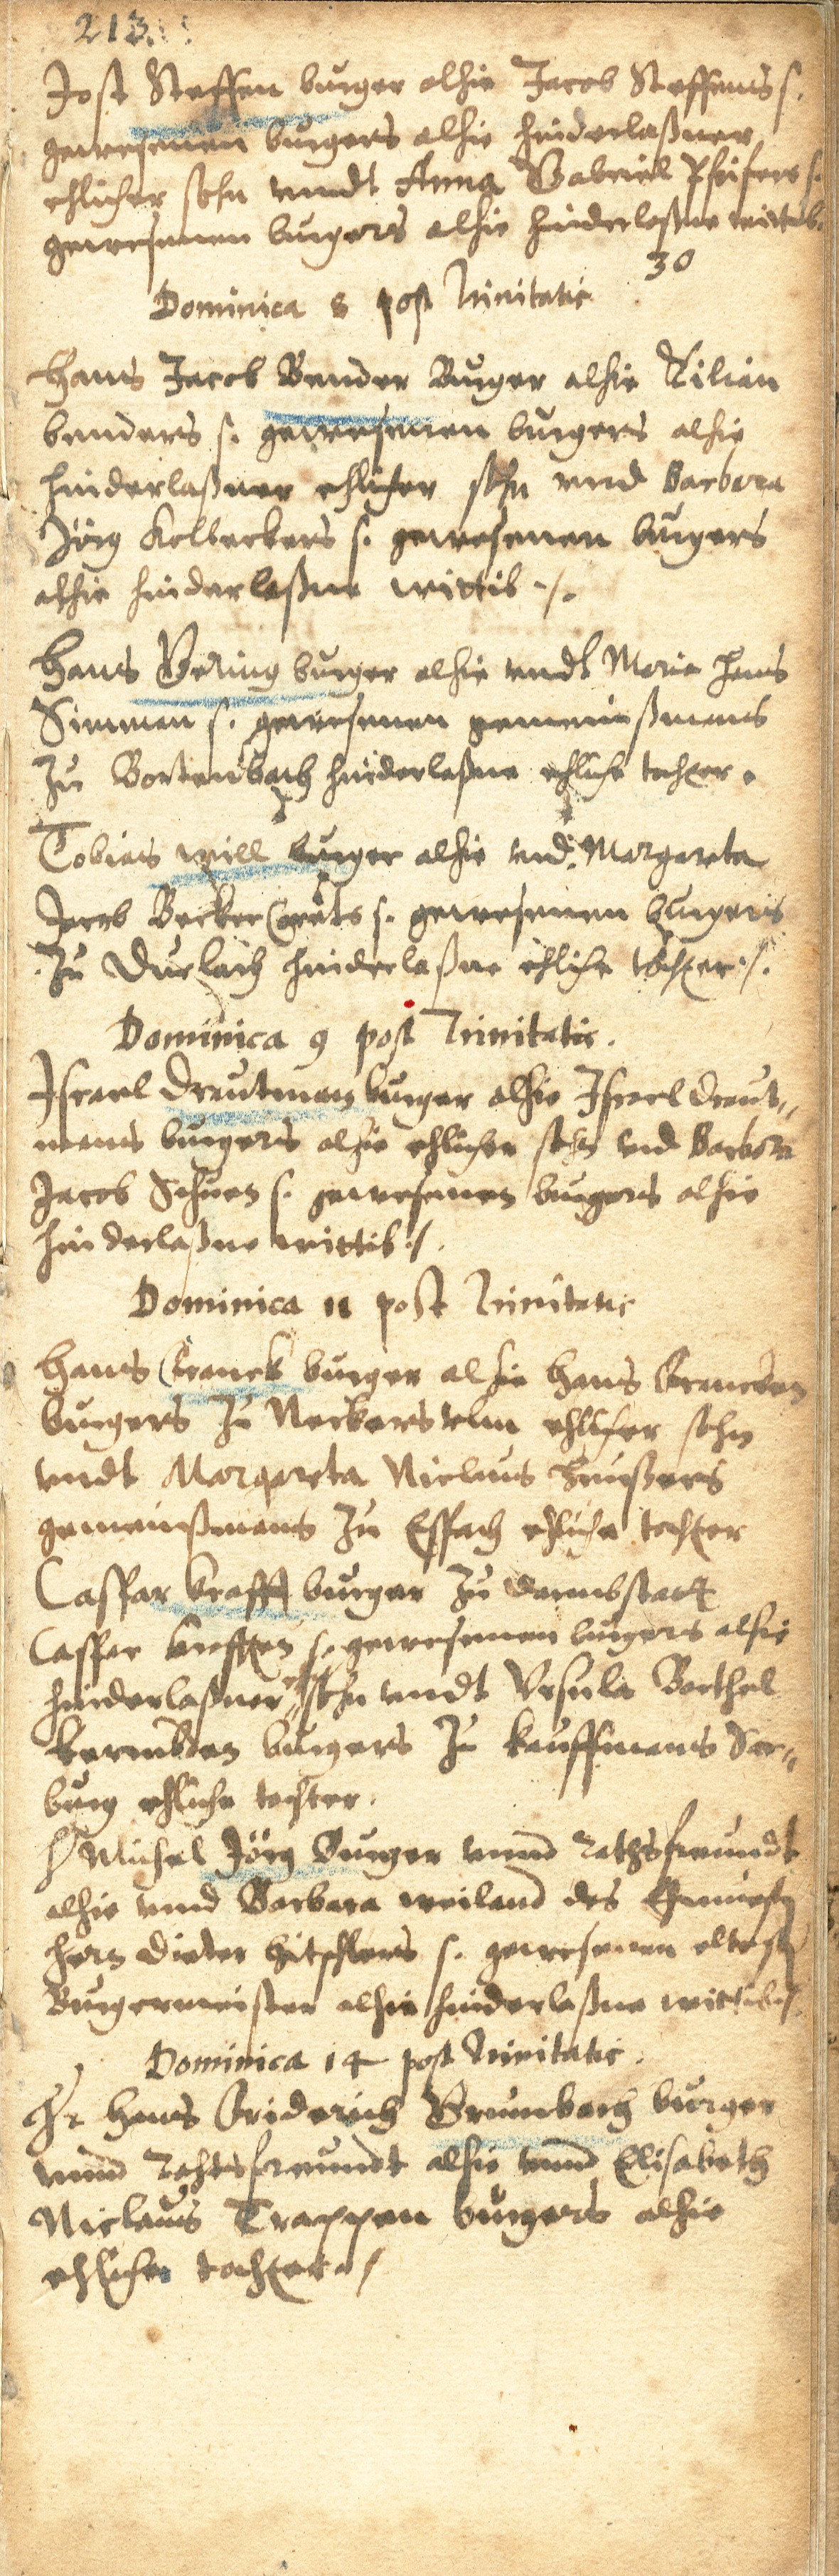 213.
Jost Steffen burger alhie Jacob Steffens s.
gewesenen burgers alhie hinderlaßner
ehlicher sohn vndt Anna Gabriel Pfeifers s.
gewesenen burgers alhie hinderlaßne wittib.
30
Dominica 8 post Trinitatis
Hans Jacob Bender Burger alhie Kilian
benders s. gewesenen burgers alhie
hinderlaßner ehlicher sohn vnd Barbara
Jörg Kolbeckers s. gewesenen burgers
alhie hinderlaßne wittib ./.
Hans Bering burger alhie vndt Maria Hans
Simmen s. gewesenen gemeinßmans
zu hinderlaßne ehliche tochter.
Tobias will burger alhie vnd Margareta
Jacob Becker s. gewesenen burgers
zu Durlach hinderlaßne ehliche tochter ./.
Dominica 9 post Trinitatis.
Israel Dreutman burger alhie Israel Dreut-
mans burgers alhie ehlicher sohn vnd Barbara
Jacob Schuen s. gewesenen burgers alhie
hinderlaßne wittib ./.
Dominica 11 post Trinitatis
Hans Franck burger alhie Hans Francken
burgers zu Neckars vlm ehlicher sohn
vndt Margareta Niclaus
gemeinßmans zu ehliche tochter
Casspar krafft burger zu darmbstatt
Casspar krefften s. gewesenen burgers alhie
hinderlaßner sohn vndt Vrsula Barthel
burgers zu kauffmans Sar-
burg ehliche tochter.
H Michel Jörg Burger vnnd rathsfreundt
alhie vnnd Barbara weiland des Ehnuest
hern Dieter s. gewesenen eltest
Burgermeister alhie hinderlaßne wittib ./.
Dominica 14 post Trinitatis.
Hr Hans Friderich Brumbach burger
vnnd Rahtsfreundt alhie vnnd Elisabeth
Niclaus Trappen burgers alhie
ehliche tochter ./